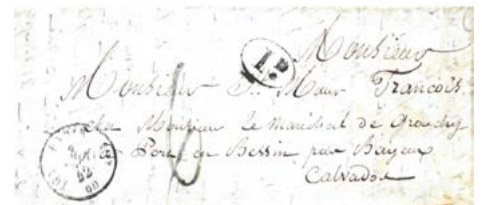 Monsieur
Monsieur S. Maur François
chez Monsieur le Maréchal de Grouchy
Port en Bessin par Bayeux
Calvados
1.
6
60